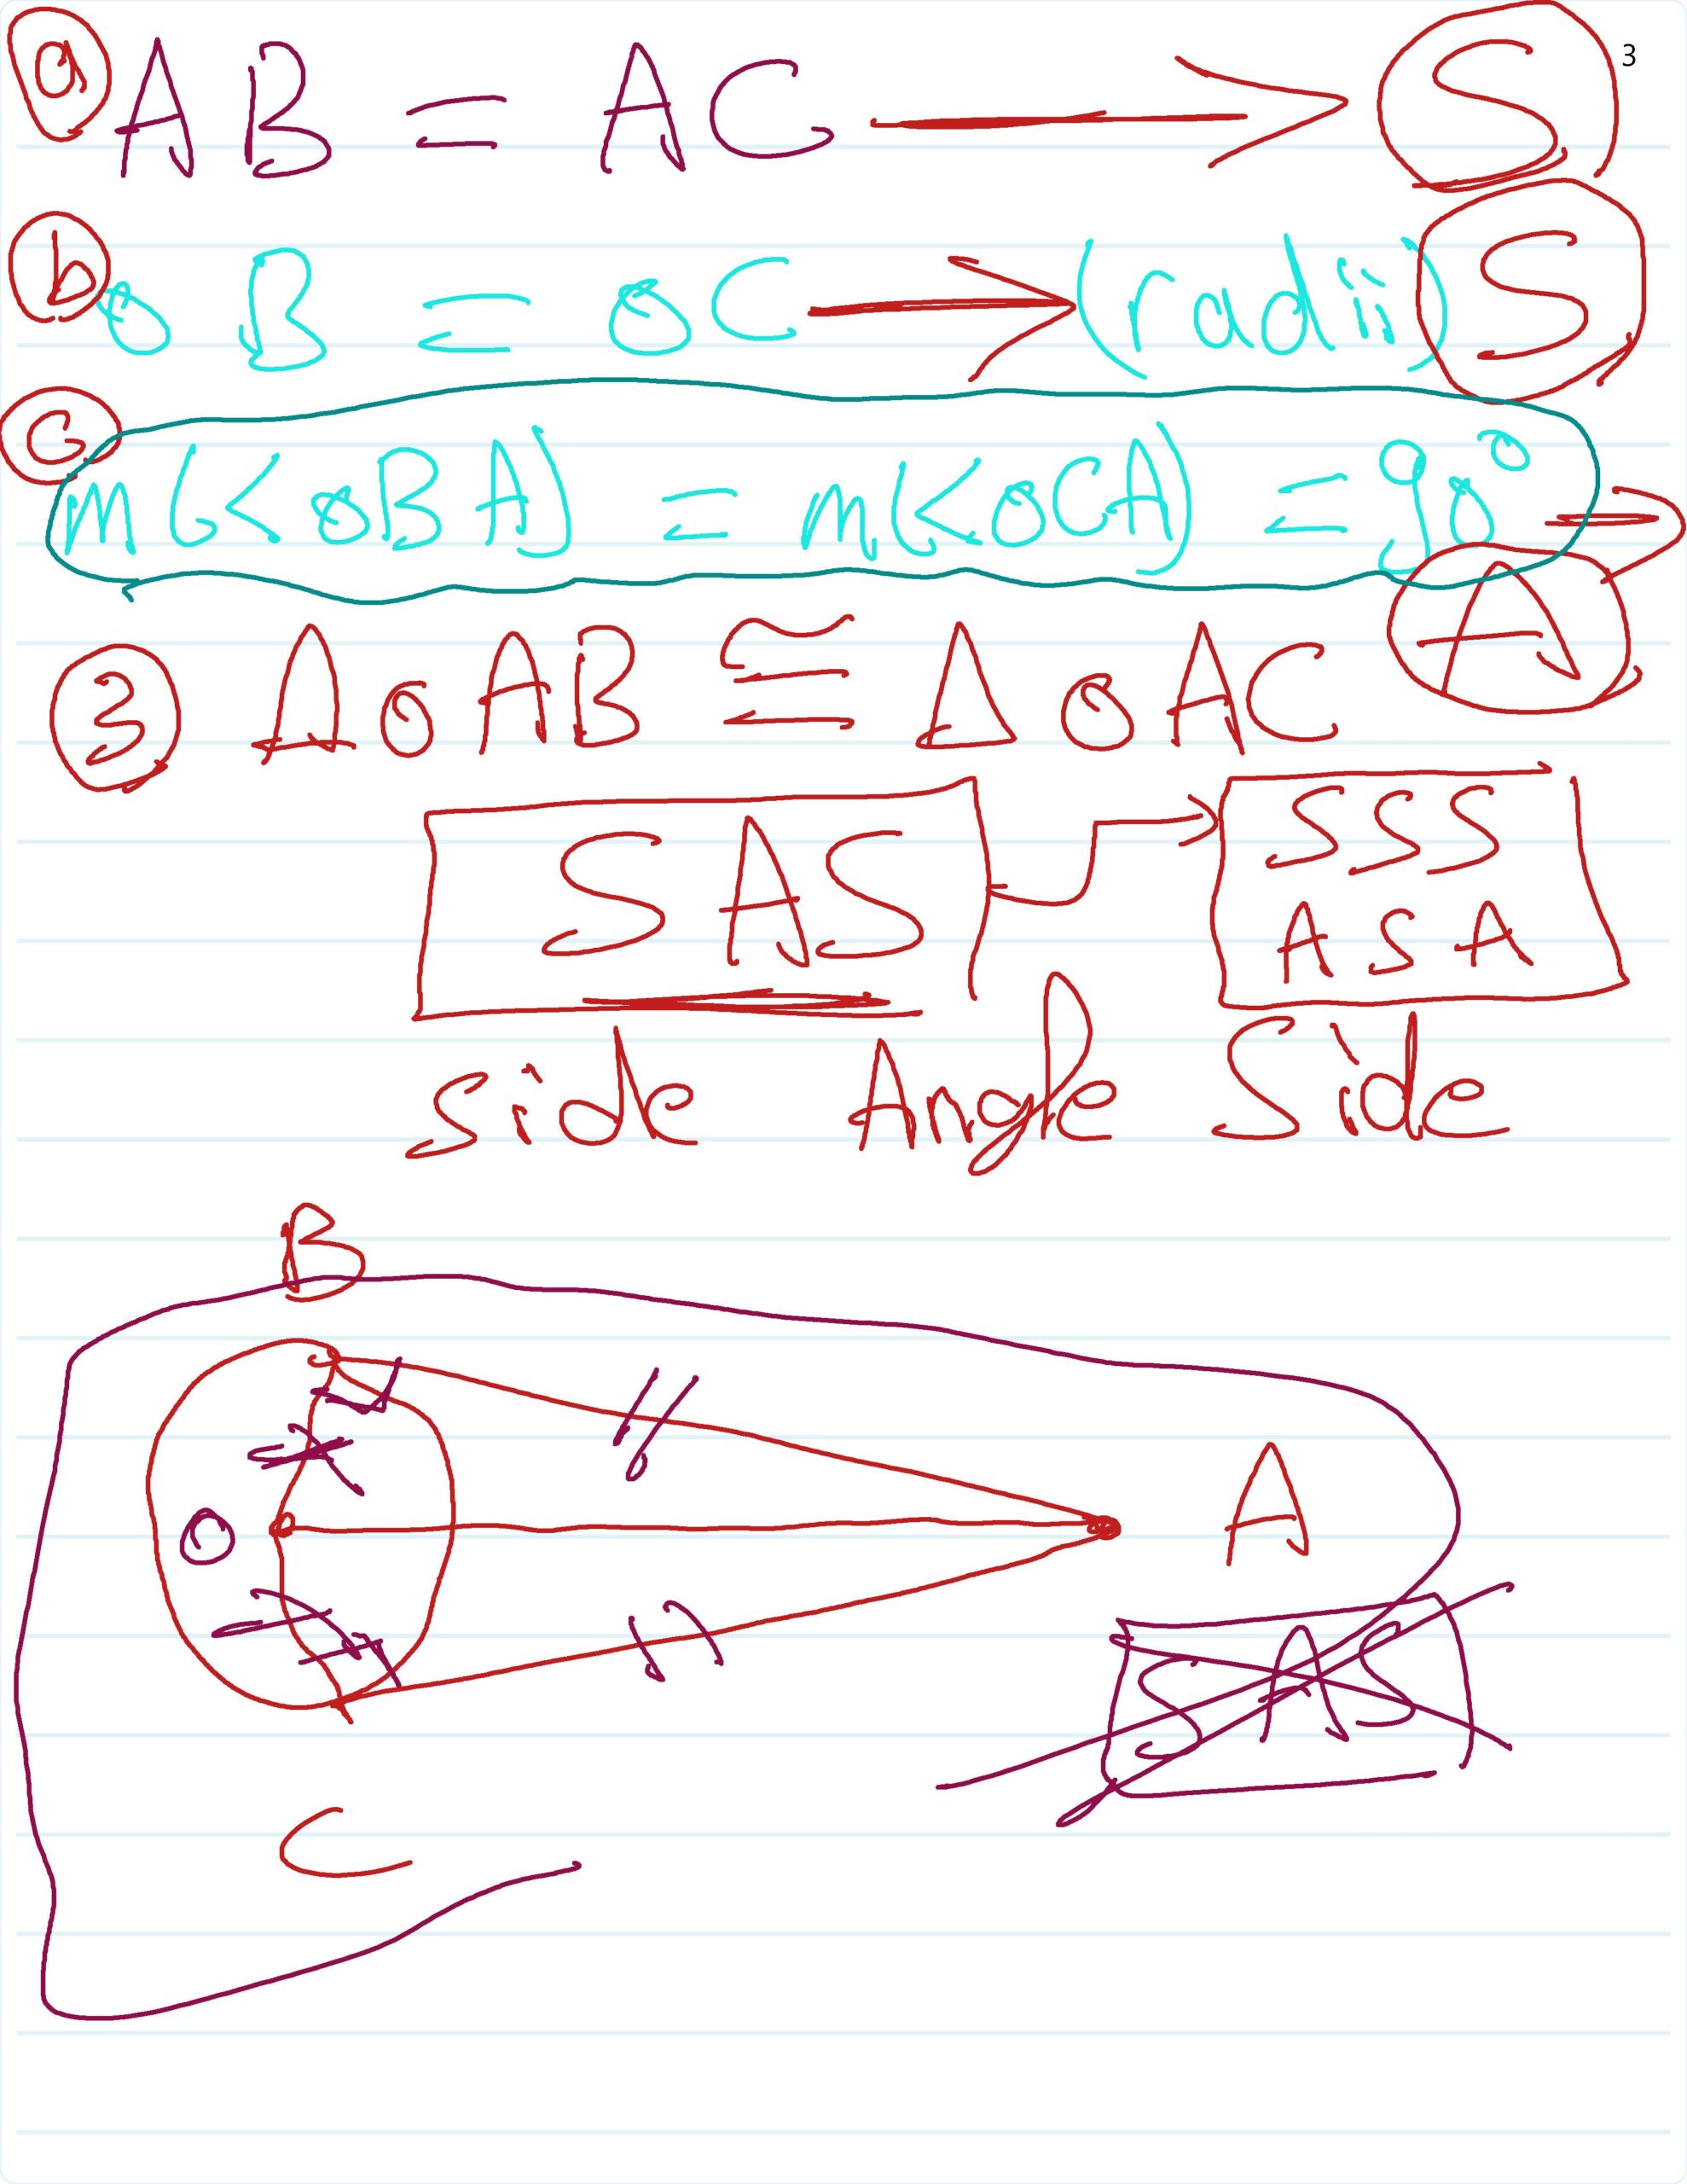 3
a AB = AC → S
b oB = oC → (radii) S
c m(<oBA) = m(<oCA) = 90° → A
3 ΔoAB ≅ ΔoAC
SAS → SSS
ASA
side Angle Side
B
O
A
SAS
C